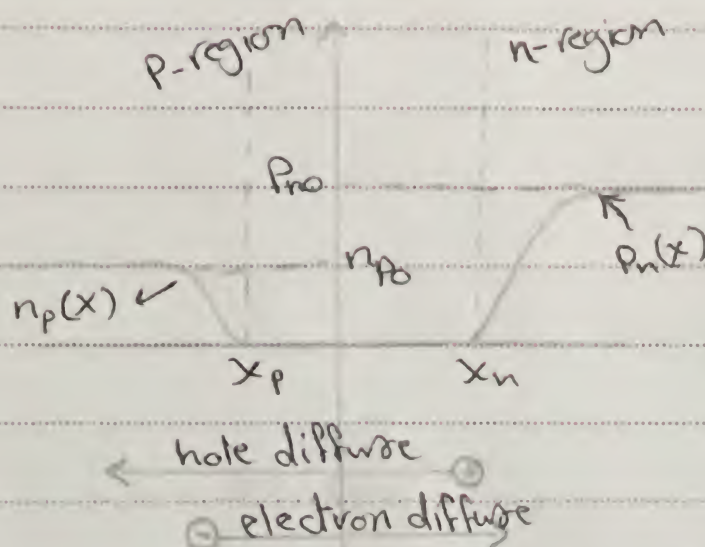 p-region n-region
Pno
npo
np(x) pn(x)
xp xn
hole diffuse
electron diffuse